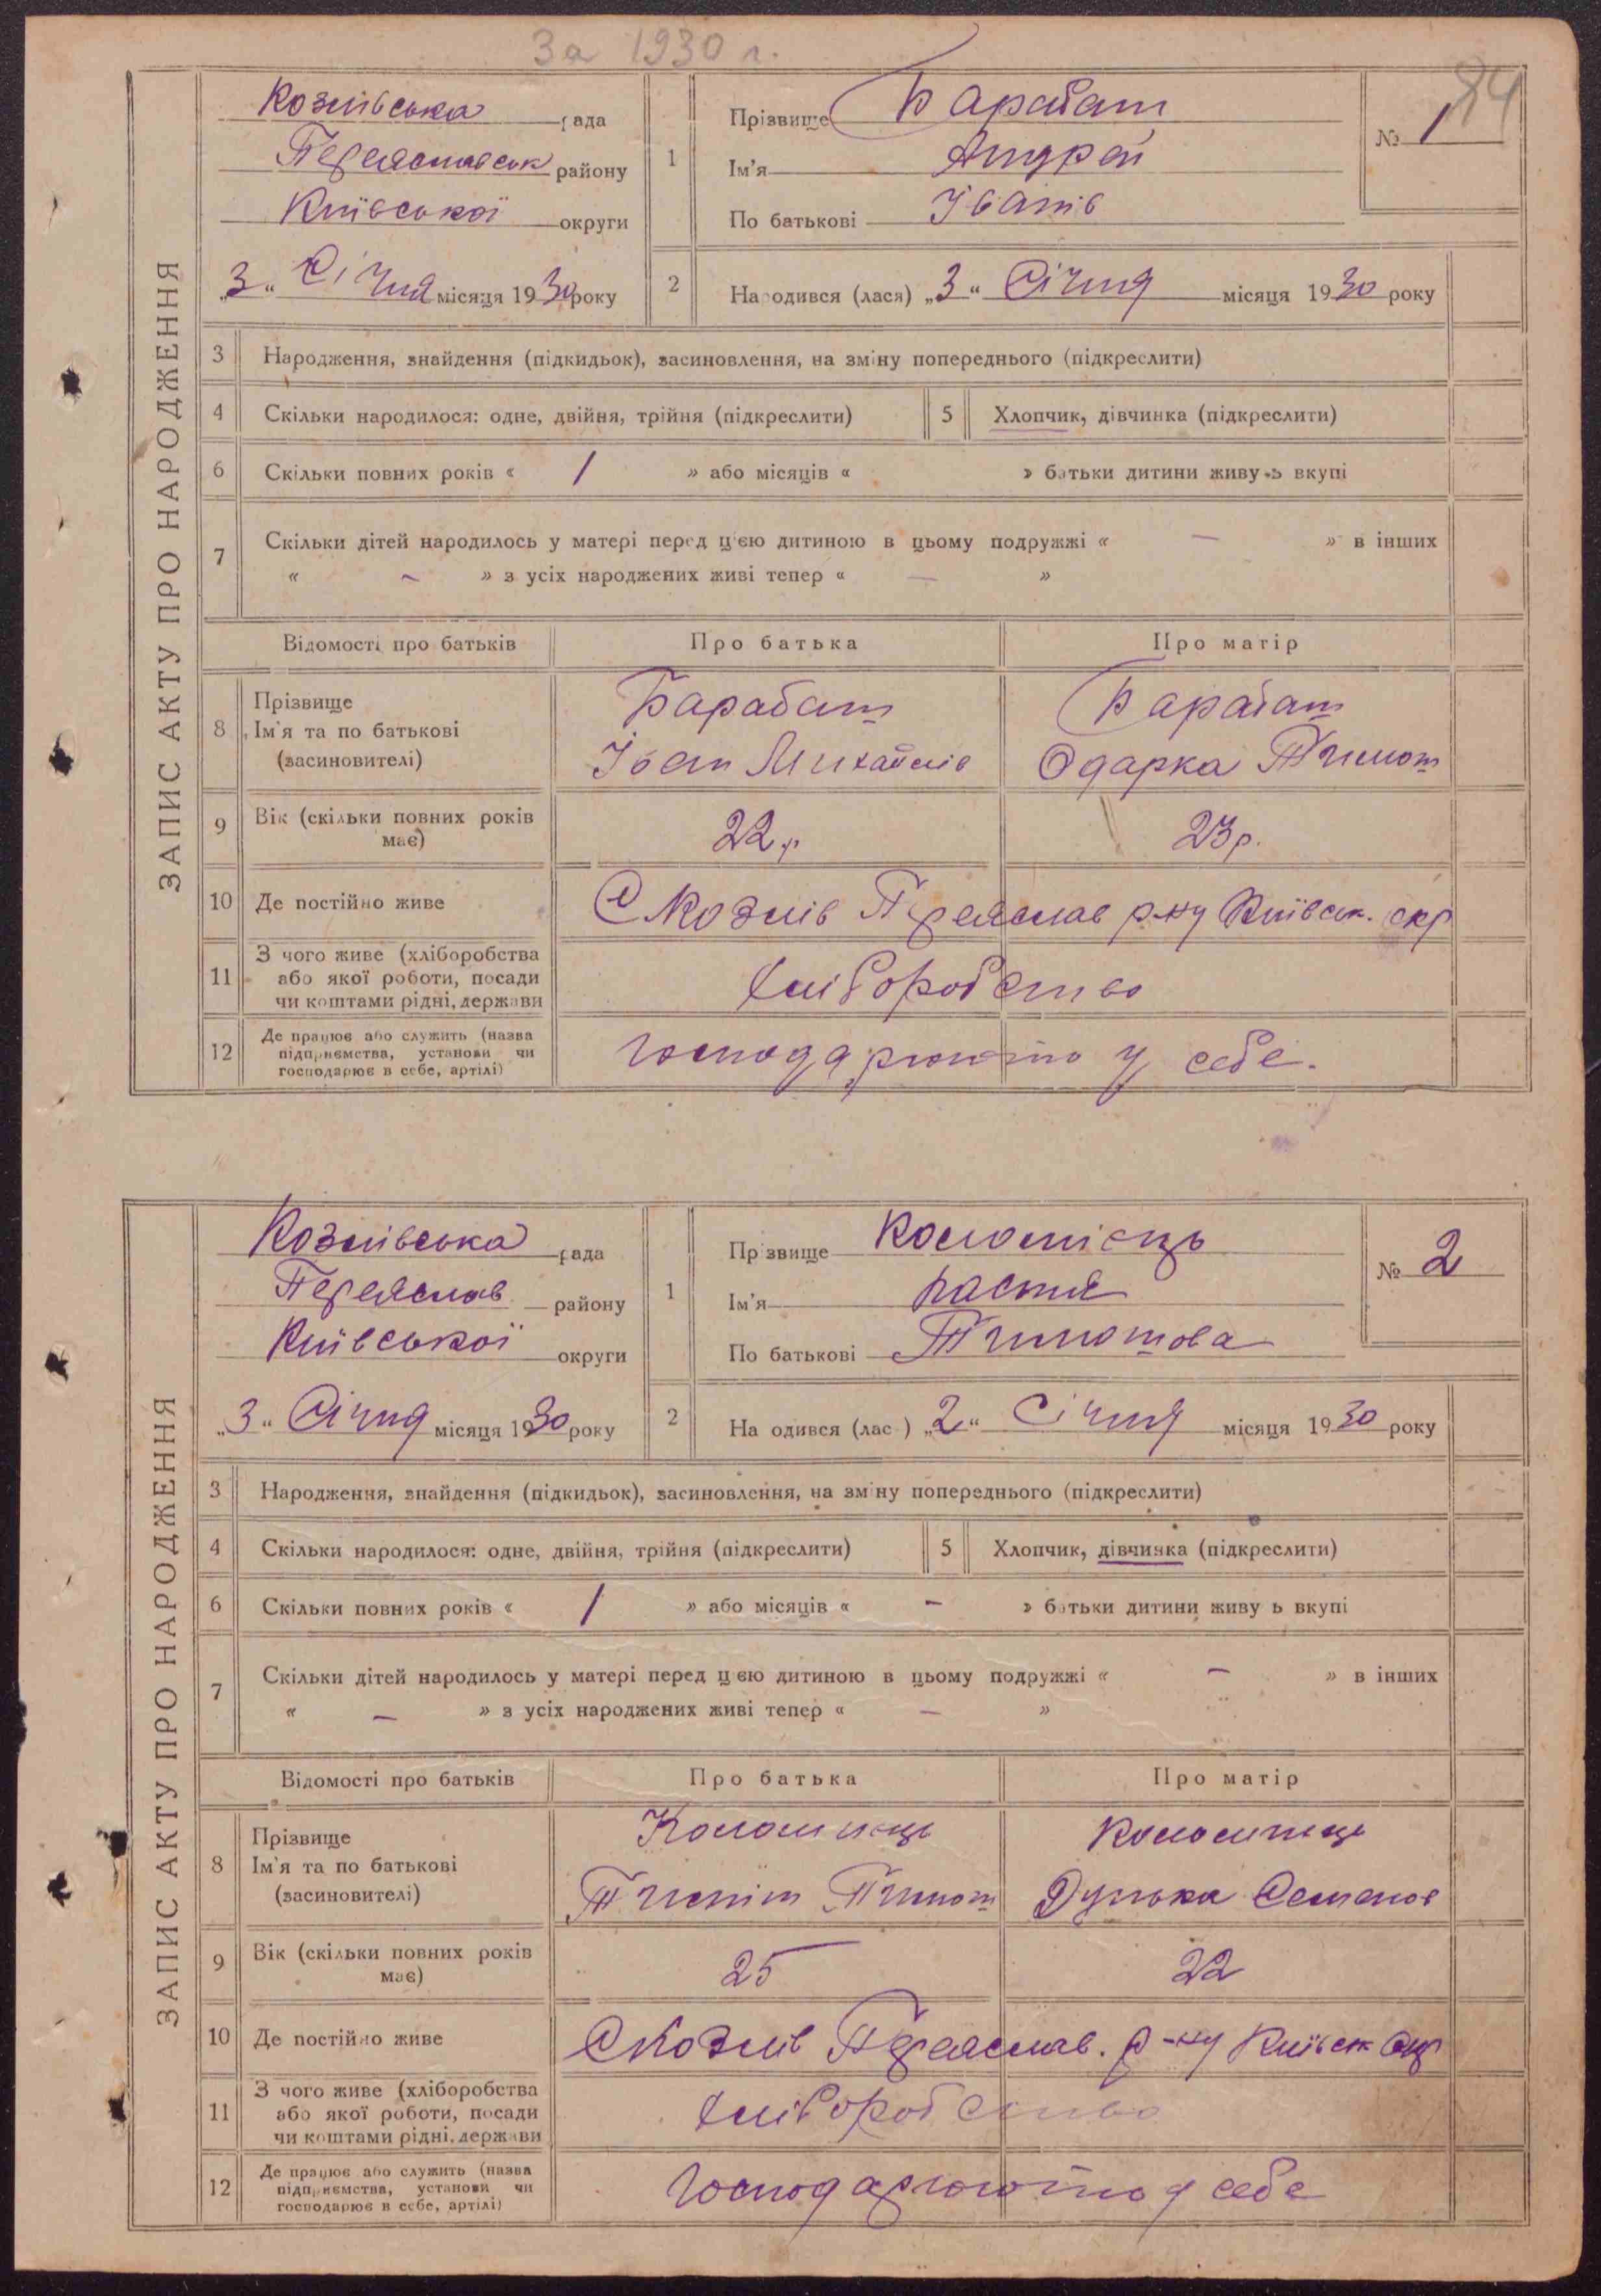 За 1930 г.
84
ЗАПИС АКТУ ПРО НАРОДЖЕННЯ
Козлівська рада
Переяславськ району
Київської округи
„3“ Січня місяця 1930 року
1
Прізвище Барабаш
Ім'я Андрей
По батькові Іванів
№ 1
2
Народився (лася) „3“ Січня місяця 1930 року
3 Народження, знайдення (підкидьок), засиновлення, на зміну попереднього (підкреслити)
4 Скільки народилося: одне, двійня, трійня (підкреслити)
5 Хлопчик, дівчинка (підкреслити)
6 Скільки повних років « 1 » або місяців « » батьки дитини живуть вкупі
7 Скільки дітей народилось у матері перед цією дитиною в цьому подружжі « — » в інших
« — » з усіх народжених живі тепер « — »
Відомості про батьків Про батька Про матір
8 Прізвище
Ім'я та по батькові
(засиновителі)
Барабаш
Іван Михайлів
Барабаш
Одарка Тимош
9 Вік (скільки повних років
має)
22 р. 23 р.
10 Де постійно живе С Козлів Переяслав р-ну Київськ. окр
11 З чого живе (хліборобства
або якої роботи, посади
чи коштами рідні, держави
хліборобство
12 Де працює або служить (назва
підприємства, установи чи
господарює в себе, артілі)
господарюють у себе.
ЗАПИС АКТУ ПРО НАРОДЖЕННЯ
Козлівська рада
Переяслав району
Київської округи
„3“ Січня місяця 1930 року
1
Прізвище Коломієць
Ім'я Настя
По батькові Тимошова
№ 2
2
Народився (лас ) „2“ Січня місяця 1930 року
3 Народження, знайдення (підкидьок), засиновлення, на зміну попереднього (підкреслити)
4 Скільки народилося: одне, двійня, трійня (підкреслити)
5 Хлопчик, дівчинка (підкреслити)
6 Скільки повних років « 1 » або місяців « — » батьки дитини живуть вкупі
7 Скільки дітей народилось у матері перед цією дитиною в цьому подружжі « — » в інших
« — » з усіх народжених живі тепер « — »
Відомості про батьків Про батька Про матір
8 Прізвище
Ім'я та по батькові
(засиновителі)
Коломиець
Тимош
Коломиець
Дунька Семенов
9 Вік (скільки повних років
має)
25 22
10 Де постійно живе С Козлів Переяслав. р-ну Київськ окр
11 З чого живе (хліборобства
або якої роботи, посади
чи коштами рідні, держави
хліборобство
12 Де працює або служить (назва
підприємства, установи чи
господарює в себе, артілі)
господарюють у себе